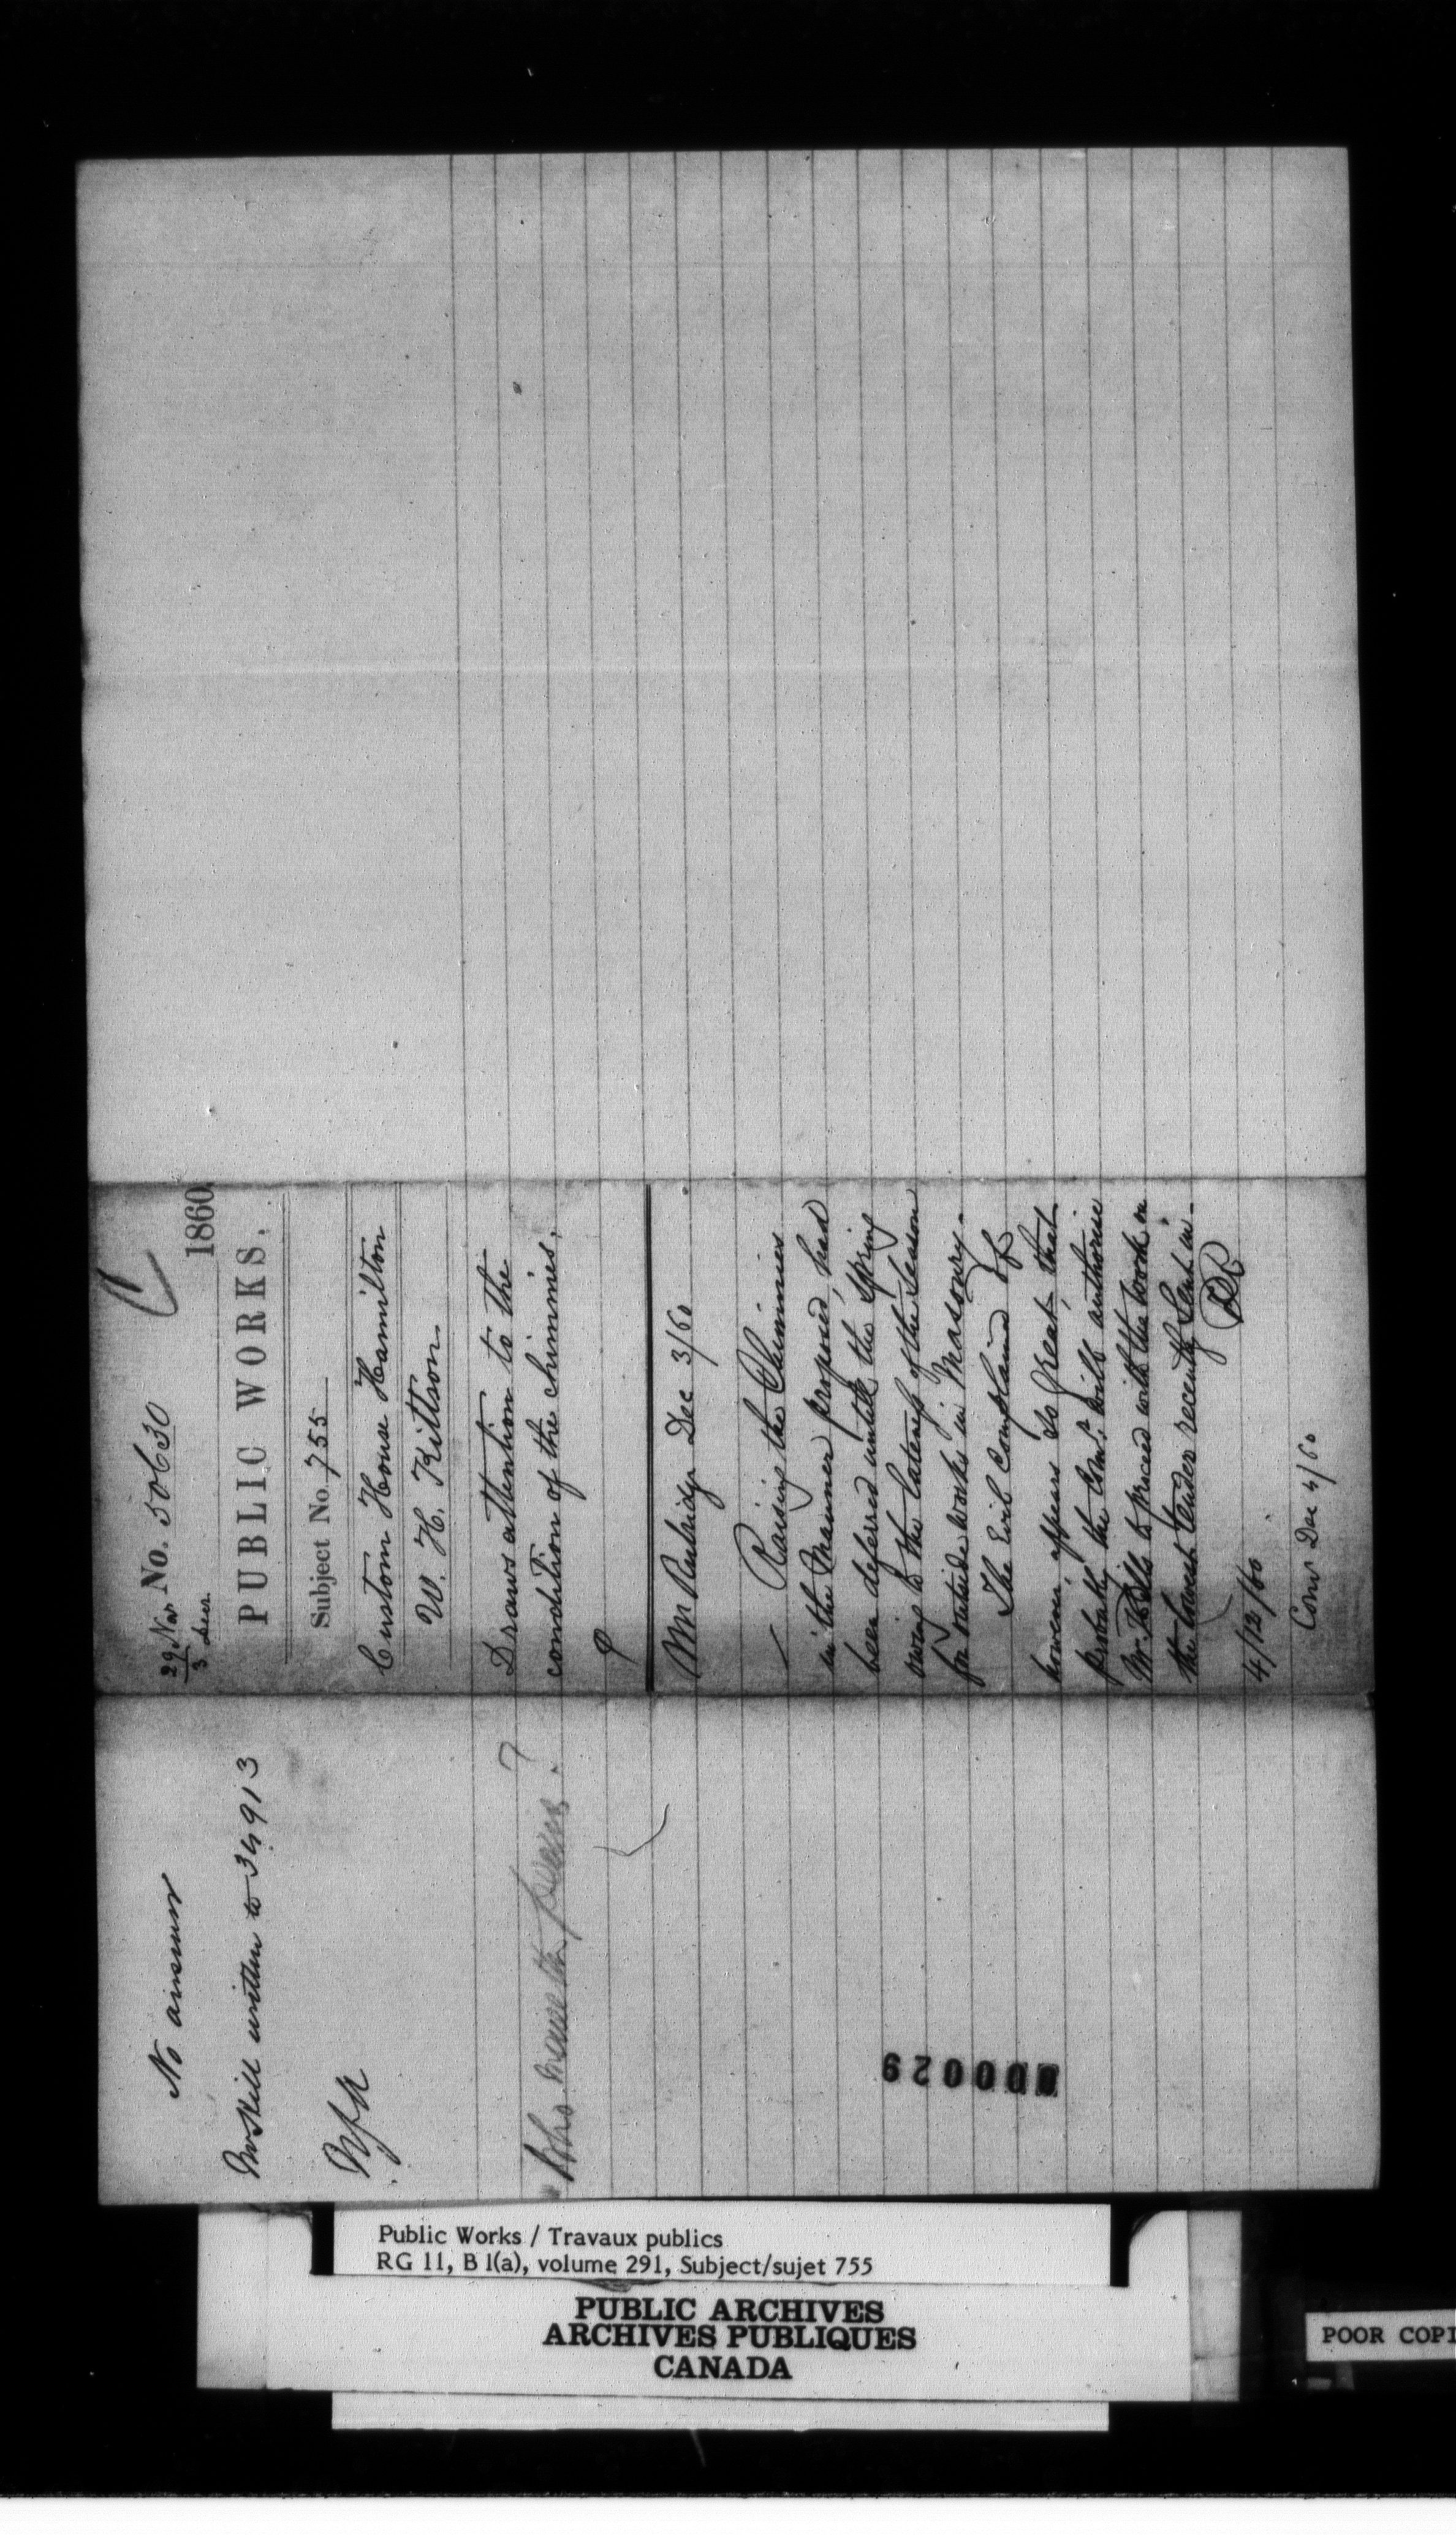 No answer
McSkill written to 34913
Who have the power?
29 Nov No. 50630
3 Decr. 1860
PUBLIC WORKS.
Subject No. 755
Custom House Hamilton
W. H. Kittson
Draws attention to the
condition of the chimnies.
Mr Rubidge Dec 3/60
Raising the Chimnies
in the Manner proposed, had
been deferred until the Spring
owing to the lateness of the Season
for outside works in Masonry.
The Evil Complained of
however, appears so great, that
probably the Comr. will authorise
Mr. to proceed with the work on
the lowest Tender recently Sent in.
4/12/60
Comr Dec 4/60
000029
Public Works / Travaux publics
RG 11, B 1(a), volume 291, Subject/sujet 755
PUBLIC ARCHIVES
ARCHIVES PUBLIQUES
CANADA
POOR COPI